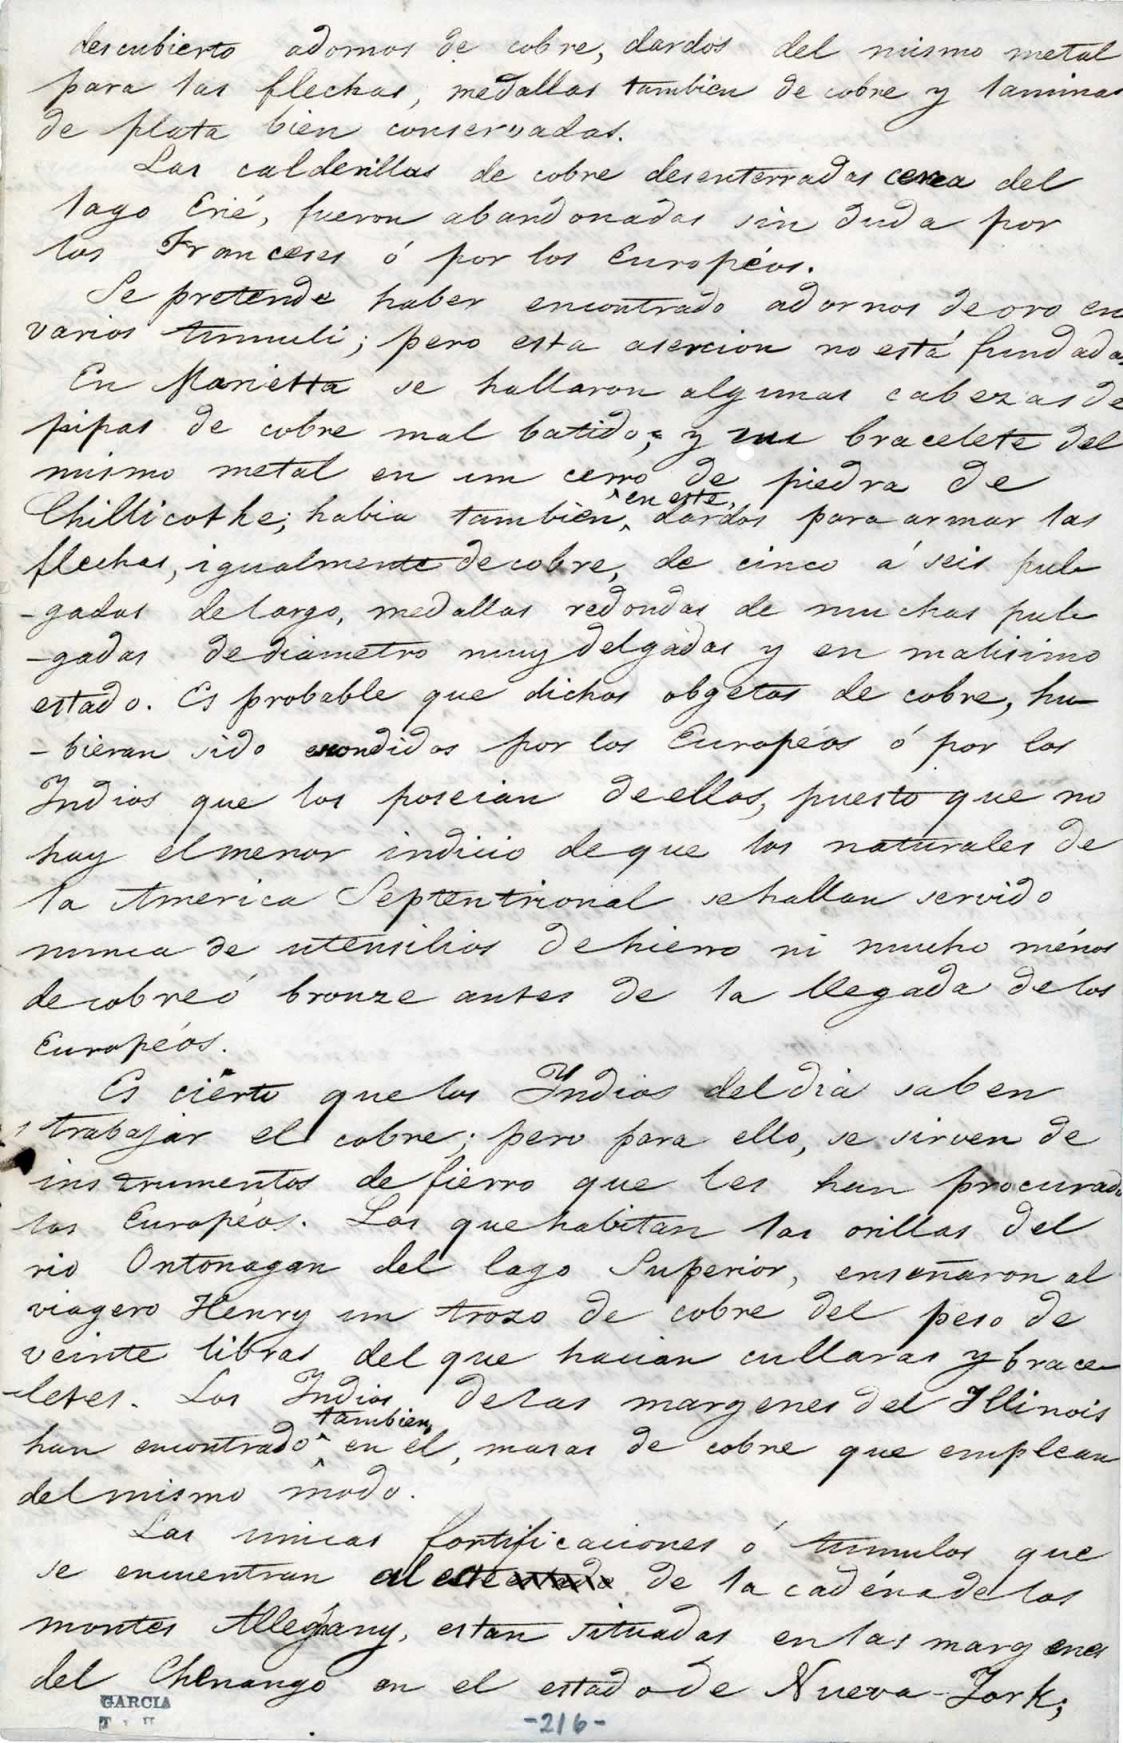 descubierto adornos de cobre, dardos del mismo metal
para las flechas, medallas tambien de cobre y laminas
de plata bien conservadas.
Las calderillas de cobre desenterradas cerca del
lago Erié, fueron abandonadas sin duda por
los Franceses ó por los Européos.
Se pretende haber encontrado adornos de oro en
varios tumuli; pero esta asercion no está fundada.
En Marietta se hallaron algunas cabezas de
pipas de cobre mal batido; y un bracelete del
mismo metal en un cerro de piedra de
en este,
Chillicothe; habia tambien, dardos para armar las
flechas, igualmente de cobre, de cinco á seis pul-
-gadas de largo, medallas redondas de muchas pul-
-gadas de diametro muy delgadas y en malisimo
estado. Es probable que dichos obgetos de cobre, hu-
-bieran sido escondidos por los Européos ó por los
Indios que los poseian de ellos, puesto que no
hay el menor indicio de que los naturales de
la America Septentrional se hallan servido
nunca de utensilios de hierro ni mucho ménos
de cobre ó bronze antes de la llegada de los
Européos.
Es cierto que los Indios del dia saben
trabajar el cobre; pero para ello, se sirven de
instrumentos de fierro que les han procurado
los Européos. Los que habitan las orillas del
rio Ontonagan del lago Superior, enseñaron al
viagero Henry un trozo de cobre del peso de
veinte libras del que hacian cullaras y brace-
-letes. Los Indios de las margenes del Illinois
tambien,
han encontrado en él, masas de cobre que emplean
del mismo modo.
Las unicas fortificaciones ó tumulos que
se encuentran al este de la cadéna de los
montes Allegány, estan situadas en las margenes
del Chenango en el estado de Nueva-York;
GARCIA
-216-